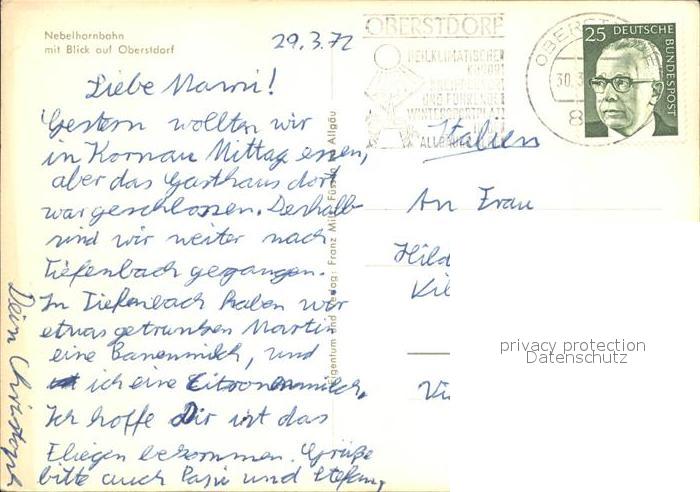 Nebelhornbahn
mit Blick auf Oberstdorf
29.3.72
Liebe Mami!
Gestern wollten wir
in Kornau Mittag essen,
aber das Gasthaus dort
war geschlossen. Deshalb
sind wir weiter nach
Tiefenbach gegangen.
In Tiefenbach haben wir
etwas getrunken Martin
eine Banenmilch, und
ich eine Zitronenmilch.
Ich hoffe Dir ist das
Fliegen bekommen. Grüße
bitte auch Papi und Stefan,
Dein Christoph
Eigentum und Verlag: Franz Milz Füssen Allgäu
OBERSTDORF
HEILKLIMATISCHER
KURORT
UND
WINTERSPORTPLATZ
OBERSTDORF
30.3
8
25 DEUTSCHE
BUNDESPOST
Italien
An Frau
Hild
privacy protection
Datenschutz